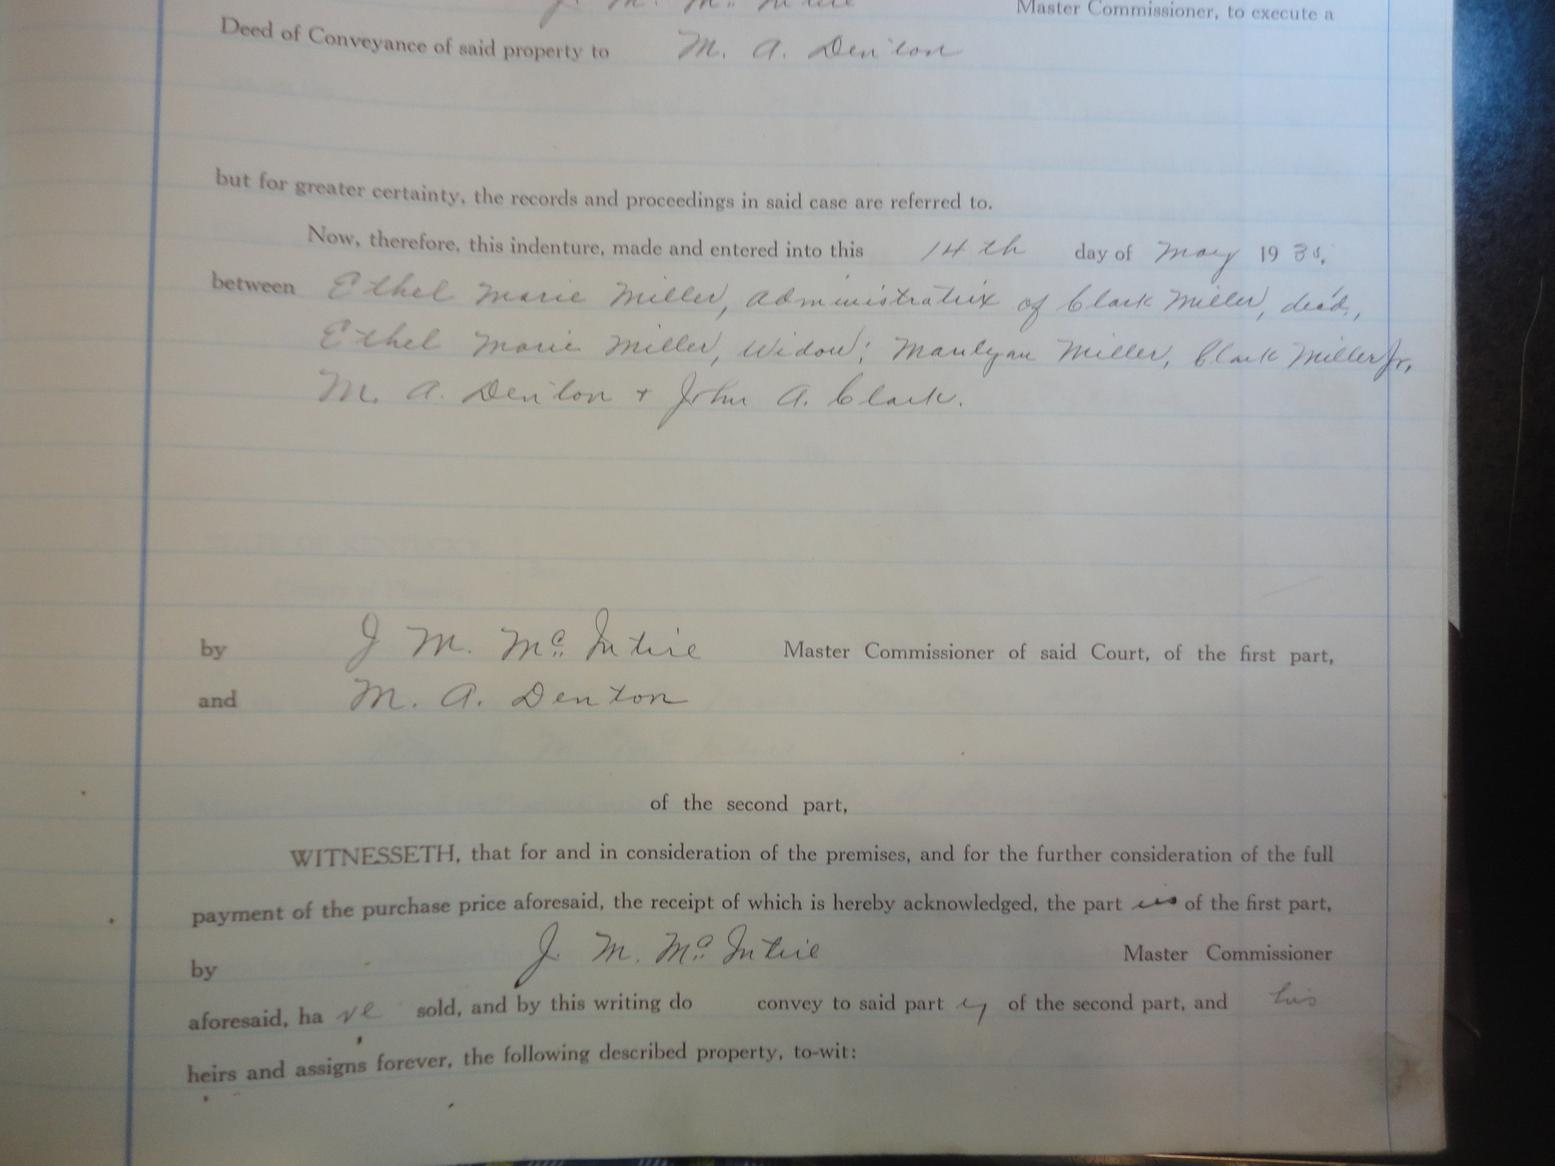 J. M. Mc Intire Master Commissioner, to execute a
Deed of Conveyance of said property to M. A. Denton
but for greater certainty, the records and proceedings in said case are referred to.
Now, therefore, this indenture, made and entered into this 14th day of May 19
between Ethel Marie Miller, administratrix of Clark Miller, dec'd,
Ethel Marie Miller, widow; Miller, Clark Miller Jr,
M. A. Denton + John A. Clark.
by J M. Mc Intire Master Commissioner of said Court, of the first part,
and M. A. Denton
of the second part,
WITNESSETH, that for and in consideration of the premises, and for the further consideration of the full
payment of the purchase price aforesaid, the receipt of which is hereby acknowledged, the part ies of the first part,
by J. M. Mc Intire Master Commissioner
aforesaid, ha ve sold, and by this writing do convey to said part y of the second part, and his
heirs and assigns forever, the following described property, to-wit: